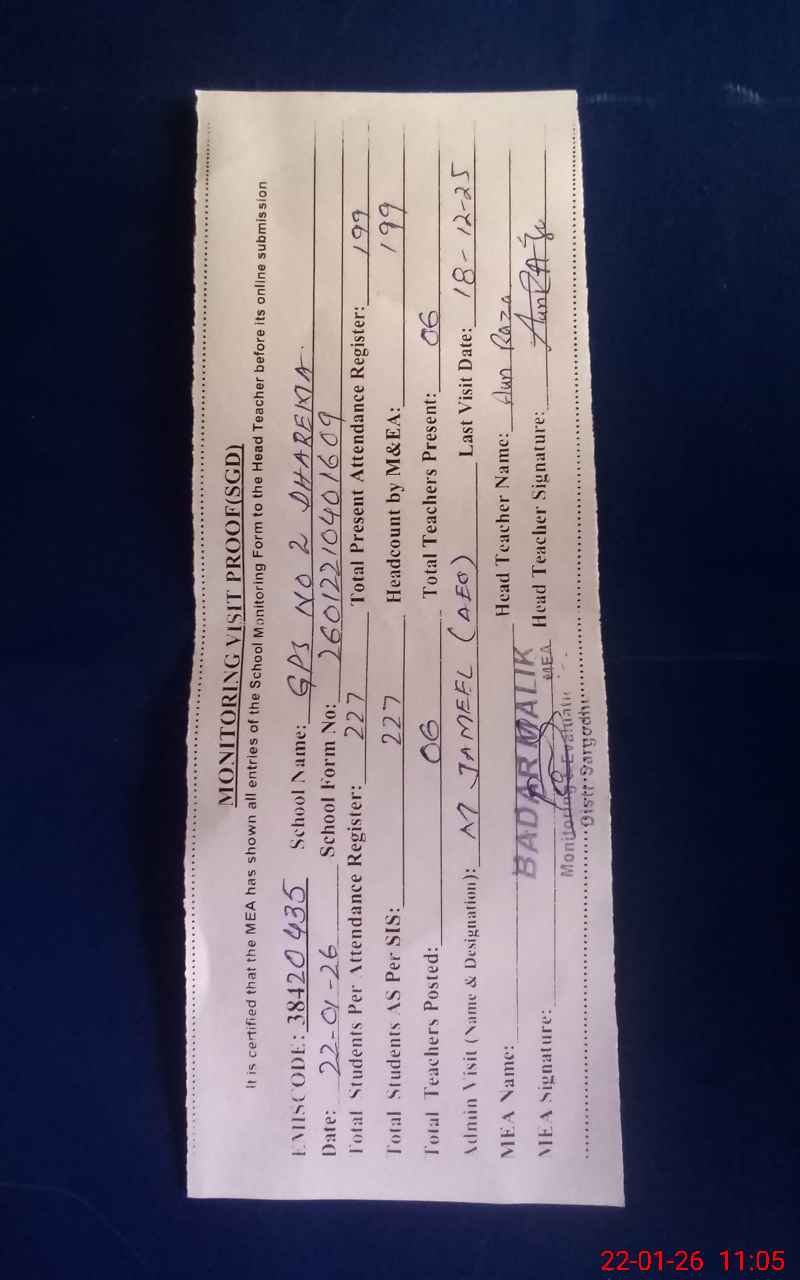 MONITORING VISIT PROOF(SGD)
It is certified that the MEA has shown all entries of the School Monitoring Form to the Head Teacher before its online submission
EMISCODE: 38420435 School Name: GPS NO 2 DHAREMA
Date: 22-01-26 School Form No: 26012210401609
Total Students Per Attendance Register: 227 Total Present Attendance Register: 199
Total Students AS Per SIS: 227 Headcount by M&EA: 199
Total Teachers Posted: 06 Total Teachers Present: 06
Admin Visit (Name & Designation): M JAMEEL (AEO) Last Visit Date: 18-12-25
MEA Name: BADAR MALIK Head Teacher Name: Aun Raza
MEA Signature: MEA Head Teacher Signature:
Monitoring & Evaluati
Distt: Sargodha
22-01-26 11:05